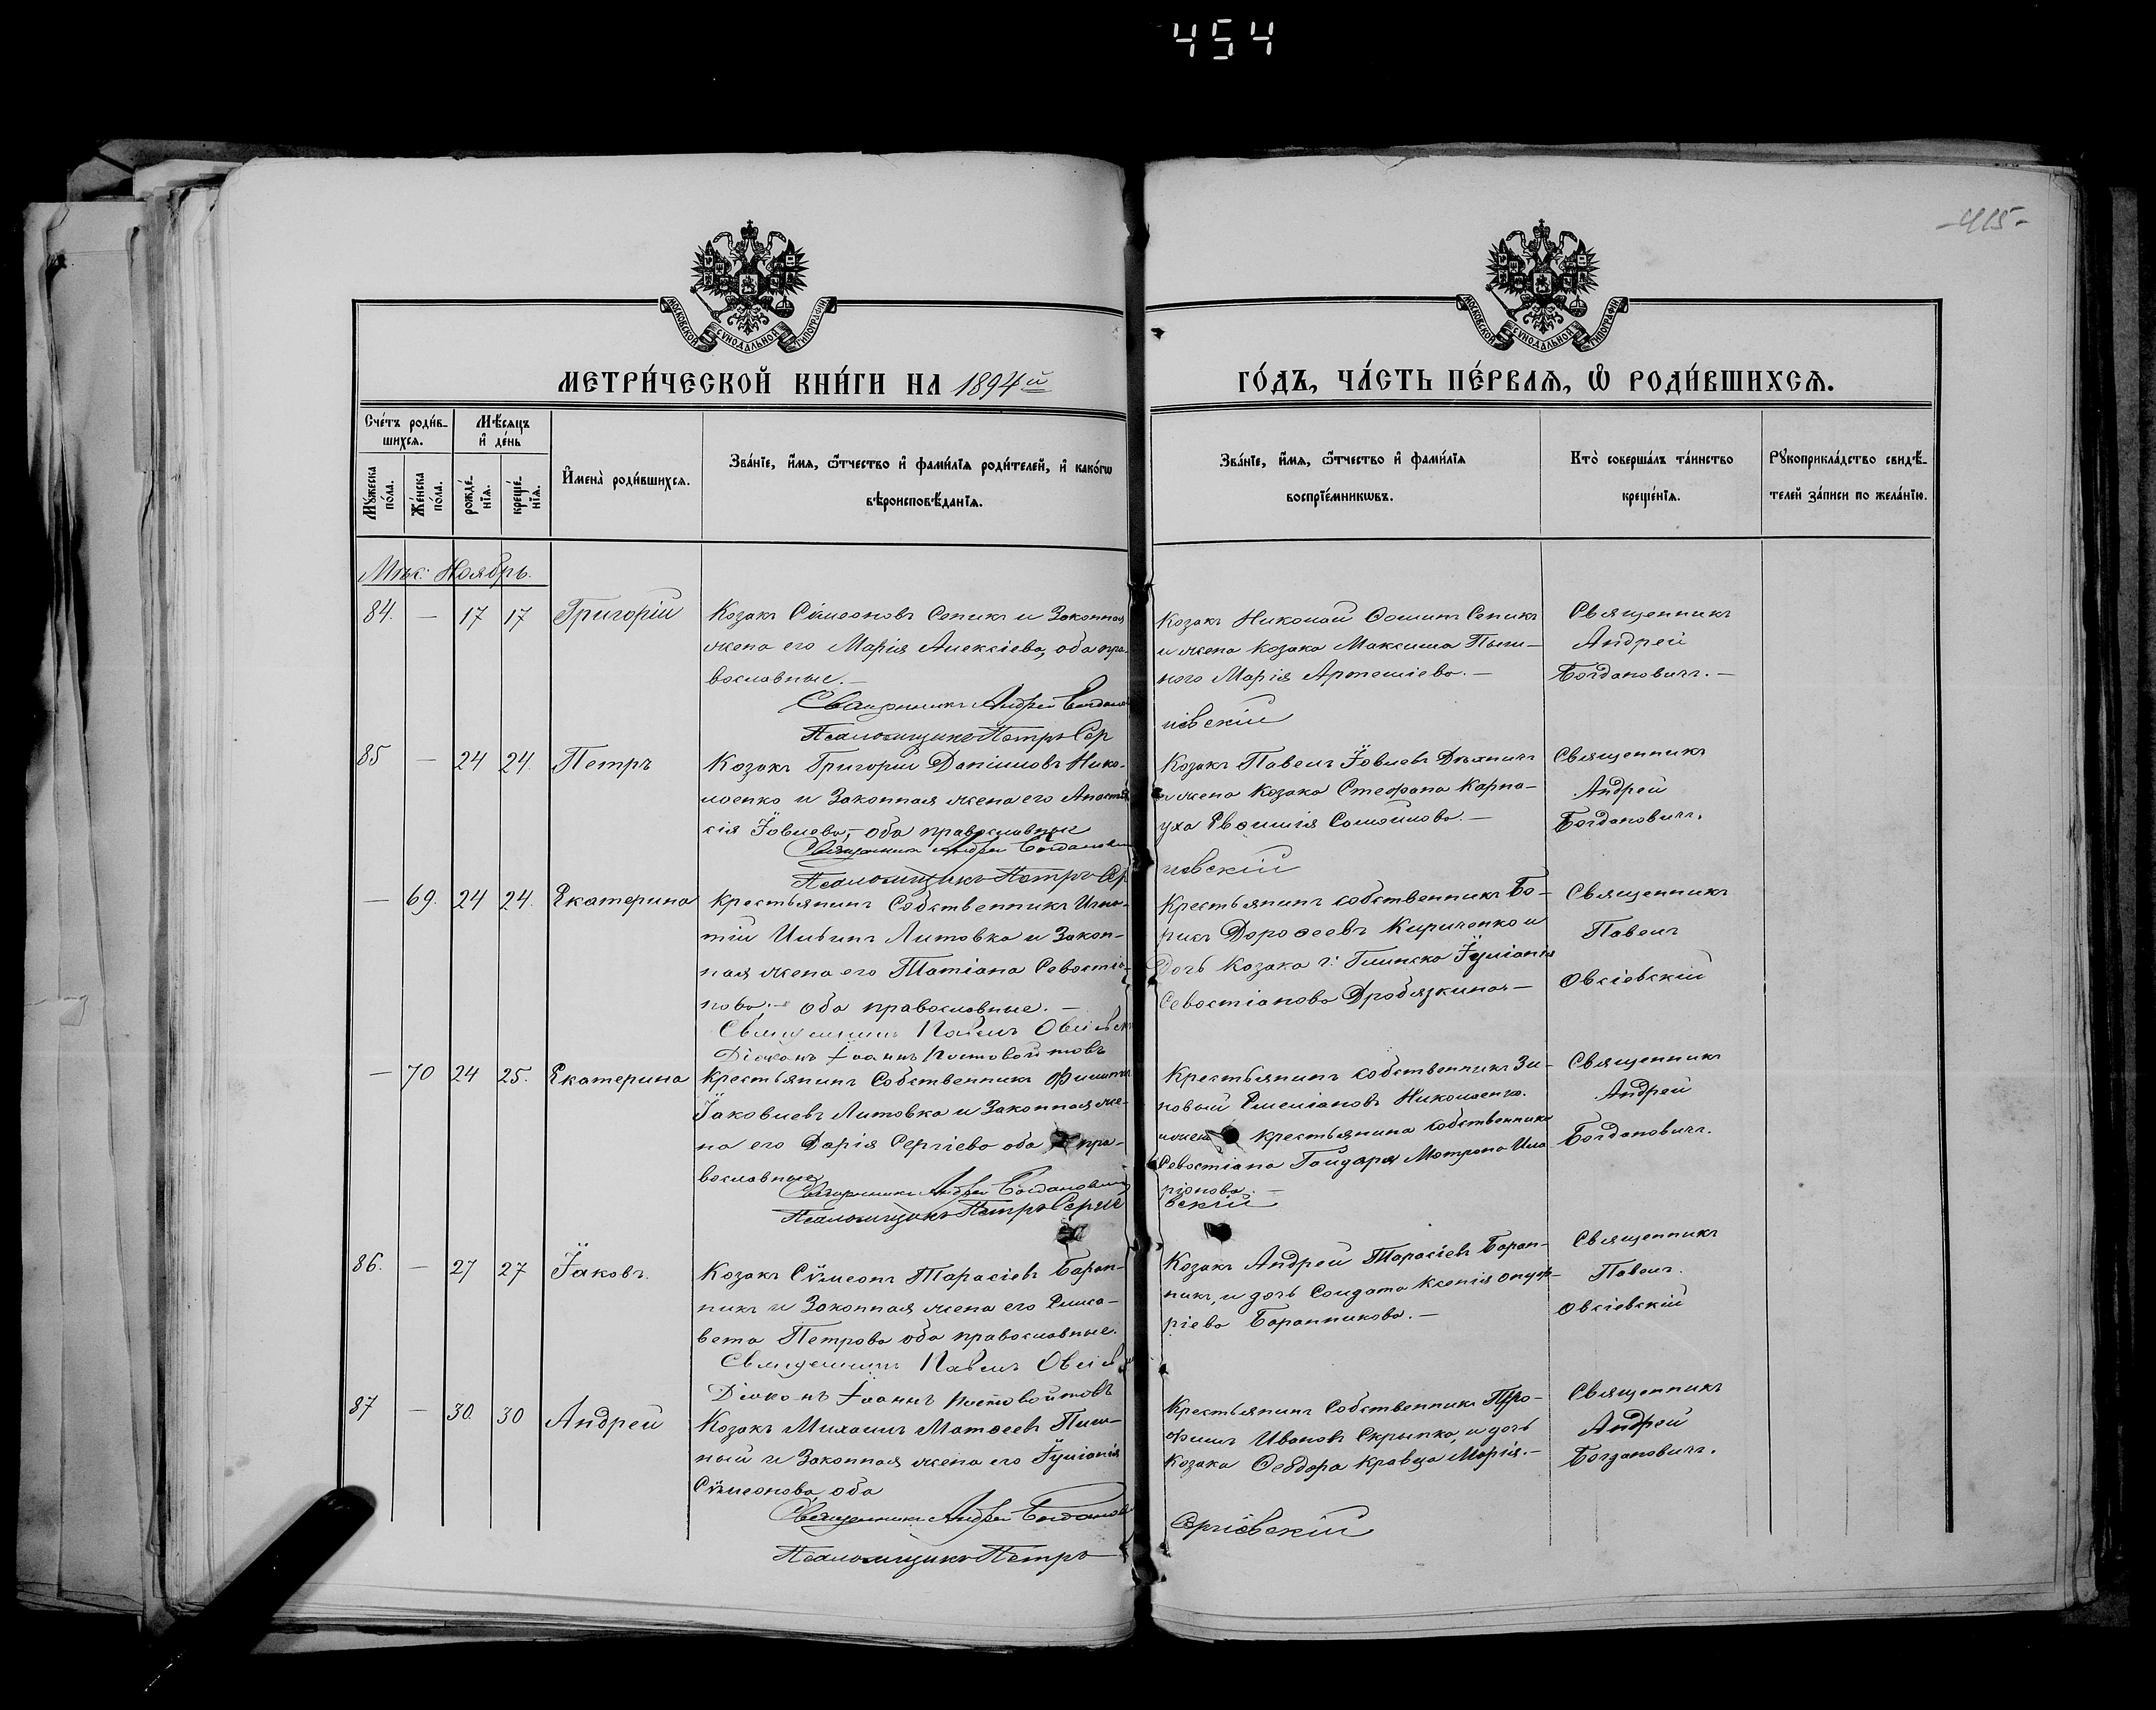 454
-415-
МОСКОВСКОЙ СѴНОДАЛЬНОЙ ТИПОГРАФІИ
МОСКОВСКОЙ СѴНОДАЛЬНОЙ ТИПОГРАФІИ
МЕТРИ́ЧЕСКОЙ КНИ́ГИ НА 1894й
ГО́ДЪ, ЧА́СТЬ ПЕ́РВАѦ, Ѡ РОДИ́ВШИХСѦ.
Сче́тъ роди́в-
шихсѧ.
Мꙋ́жеска по́ла.
Же́нска по́ла.
Мѣ́сѧцъ
и҆ де́нь
рожде́-
нїѧ.
креще́-
нїѧ.
И҆мена̀ роди́вшихсѧ.
Зва́нїе, и҆́мѧ, ѻ҆́тчество и҆ фами́лїѧ роди́телей, и҆ како́гѡ
вѣроисповѣ́данїѧ.
Зва́нїе, и҆́мѧ, ѻ҆́тчество и҆ фами́лїѧ
воспрїе́мникѡвъ.
Кто̀ соверша́лъ та́инство
креще́нїѧ.
Рꙋкоприкла́дство свидѣ́-
телей за́писи по жела́нїю.
Мѣс: Ноябрь.
84. — 17 17 Григорій
Козакъ Сѵмеоновъ Сепикъ и Законная
жена его Марія Алексіева, оба пра-
вославные.—
Священникъ Андрей Богданов
Псаломщикъ Петръ Сер
Козакъ Николай Ѳоминъ Сепикъ
и жена козака Максима Пыш-
ного Марія Артеміева.—
гіевскій
Священникъ
Андрей
Богдановичъ.—
85 — 24 24. Петръ
Козакъ Григорій Даніиловъ Нико-
лаенко и Законная жена его Анаста
сія Іовлева,— оба православные
Священникъ Андрей Богданович
Псаломщикъ Петръ Сер
Козакъ Павелъ Іовлевъ
и жена козака Стефана Карпа-
уха Евфимія Самойлова.—
гіевскій
Священникъ
Андрей
Богдановичъ.
— 69. 24 24. Екатерина
Крестьянинъ Собственникъ Игна-
тій Ильинъ Литовка и Закон-
ная жена его Татіана Севастіа-
нова.— оба православные.—
Священникъ Павелъ Овсіевск
Діаконъ Іоаннъ Постовойтовъ
Крестьянинъ собственникъ Бо-
рисъ Дороѳеевъ Кириченко и
Дочь козака г: Глинска Іуліанія
Севастіанова Дробязкина—
Священникъ
Павелъ
Овсіевскій
— 70 24 25. Екатерина
Крестьянинъ Собственникъ Филиппъ
Іаковлевъ Литовка и Законная же-
на его Дарія Сергіева оба пра-
вославные
Священникъ Андрей Богданович
Псаломщикъ Петръ Сергіе
Крестьянинъ собственникъ Зи-
новий Емеліановъ Николаенко.
и жена крестьянина собственника
Севастіана Гайдаря Матрона Ила
ріонова.—
вскій
Священникъ
Андрей
Богдановичъ.
86. — 27 27 Іаковъ.
Козакъ Сѵмеонъ Тарасіевъ Баран-
никъ и Законная жена его Елиса-
вета Петрова оба православные.
Священникъ Павелъ Овсіев
Діаконъ Іоаннъ Постовойтовъ
Козакъ Андрей Тарасіевъ Баран-
никъ, и дочь Солдата Ксенія Онуф-
ріева Баранникова.—
Священникъ
Павелъ.
Овсіевскій
87 — 30. 30 Андрей
Козакъ Михаилъ Матѳеевъ Пиш-
ный и Законная жена его Іуліанія
Сѵмеонова, оба
Священникъ Андрей Богданов
Псаломщикъ Петръ
Крестьянинъ Собственникъ Тро-
фимъ Ивановъ Скрыпка, и дочь
козака Ѳеодора Кравца Марія.—
Сергіевскій
Священникъ
Андрей
Богдановичъ.